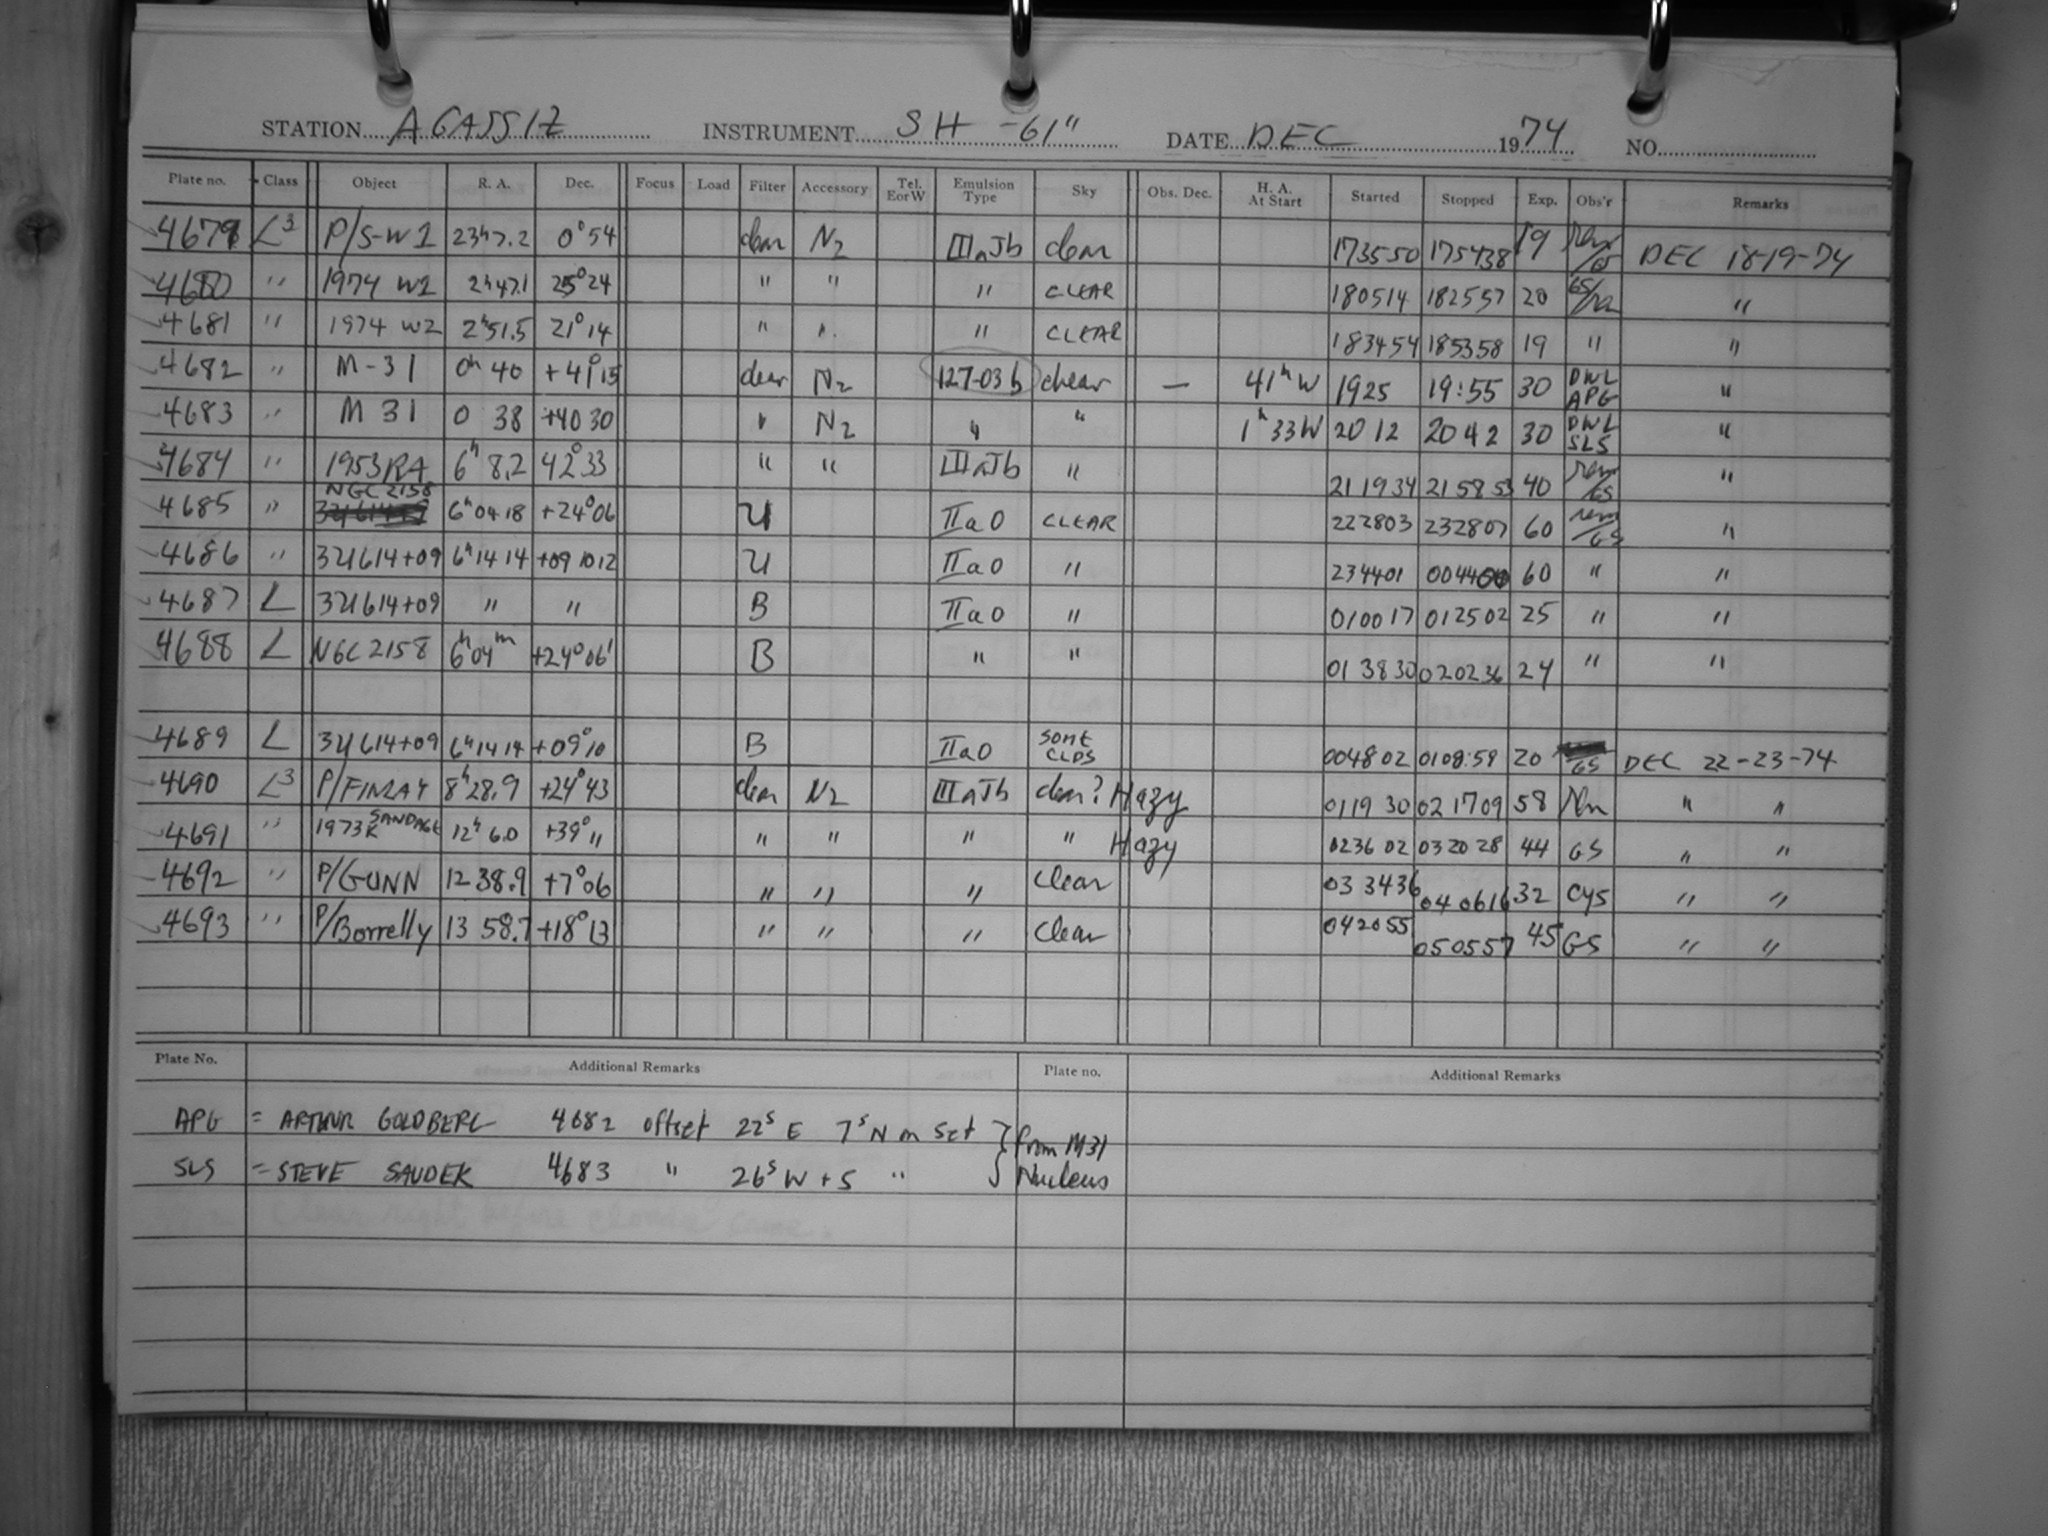 STATION AGASSIZ INSTRUMENT SH-61" DATE DEC 1974 NO.
Plate no. Class Object R. A. Dec. Focus Load Filter Accessory Tel. E or W Emulsion Type Sky Obs. Dec. H. A. At Start Started Stopped Exp. Obs'r Remarks
4679 L3 P/S-W1 23h47.2 0°54 clear N2 IIIaJb clear 173550 175438 19 DEC 18-19-74
4680 " 1974 W1 2h47.1 25°24 " " " CLEAR 180514 182557 20 "
4681 " 1974 W2 2h51.5 21°14 " " " CLEAR 183454 185358 19 " "
4682 " M-31 0h 40 +41°15 clear N2 127-03b clear — 41m W 1925 19:55 30 DWL APG "
4683 " M 31 0 38 +40 30 " N2 " " 1h 33W 20 12 20 42 30 DWL SLS "
4684 " 1953RA 6h 8.2 42°33 " " IIIaJb " 211934 215853 40 "
4685 " NGC 2158 6h 04 18 +24°06 U IIaO CLEAR 222803 232807 60 "
4686 " 3U614+09 6h 14 14 +09 10 12 U IIaO " 234401 004400 60 " "
4687 L 3U614+09 " " B IIaO " 010017 012502 25 " "
4688 L NGC 2158 6h04m +24°06' B " " 013830 020236 24 " "
4689 L 3U614+09 6h 14 14 +09°10 B IIaO SOME CLDS 004802 0108:59 20 GS DEC 22-23-74
4690 L3 P/FINLAY 8h28.9 +24°43 clear N2 IIIaJb clear? Hazy 011930 021709 58 " "
4691 " 1973K SANDAGE 12h 6.0 +39°11 " " " " Hazy 023602 032028 44 GS " "
4692 " P/GUNN 12 38.9 +7°06 " " " clear 033436 040616 32 CYS " "
4693 " P/Borrelly 13 58.7 +18°13 " " " clear 042055 050557 45 GS " "
Plate No. Additional Remarks Plate no. Additional Remarks
APG = ARTHUR GOLDBERG 4682 offset 22s E 7s N in set } from M31
SLS = STEVE SAUDEK 4683 " 26s W + S " } Nucleus